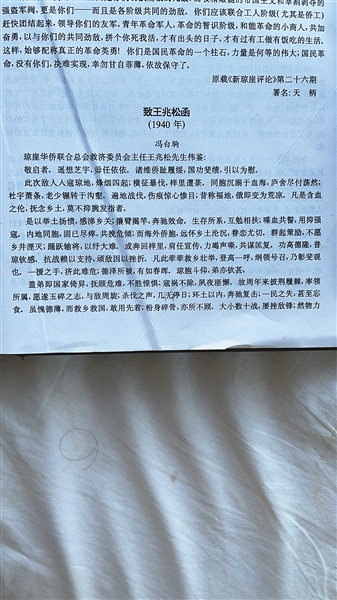 强盗军阀，更是你们——而且是各阶级共同的劲敌。你们应该联合工人阶级(尤其是侨工)
赶快团结起来，领导你们的友军，青年革命军人，革命的智识阶级，和革命的小商人，共加
奋勇，以与你们的共同劲敌，拼个你死我活，才有出头的日子，才有过有工做有饭吃的生活，
这样，始够配称真正的革命英勇！你们是国民革命的一个柱石，力量是何等的伟大；国民革
命，没有你们，决难实现，幸勿甘自菲薄，依故保守了。
原载《新琼崖评论》第二十六期
署名：天 柄
致王兆松函
(1940年)
冯白驹
琼崖华侨联合总会救济委员会主任王兆松先生伟鉴：
敬启者。遥想芝宇，毋任依依。诸维侨祉履绥，国功斐绩，引以为慰。
此次敌人入寇琼地，烽烟四起；横征暴伐，梓里遭荼。同胞沉溺于血海，庐舍尽付荡然；
杜宇萧条，老少辗转于沟壑。遍地战伐，伤痕惊心惨目；昔称福地，俄即变为荒凉。凡是含血
之伦，抚念乡土，莫不抑腕发指者。
是以举土扬愤，感涕乡关；攘臂揭竿，奔驰效命。生存所系，互勉相扶；喋血共誓，用抑强
寇。内地同胞，固已尽瘁，共挽危倾；而海外侨胞，远怀乡土沦沉，眷恋尤切。群起策励，不愿
乡井湮灭；踊跃输将，以纾大难。或奔回梓里，肩任宣传，力竭声嘶，共谋匡复。功高德隆，普
琼钦感。抗战赖以支持，顽敌因以挫折。凡此荦荦救乡壮举，登高一呼，纲领号召，乃彰受观
也。一援之手，济此难危；德泽所被，有如春晖。琼胞斗仰，弟亦钦甚。
盖弟即国家倚异，抚顾危难，不胜惶惧；寇祸不除，夙夜匪懈。故周年来披荆履棘，率领
所属，愿遂玉碎之志，与敌周旋；杀伐之声，几无停日；环土以内，奔驰复击；一民之失，甚至忘
食。虽愧德薄，而救乡救国，敢用先着；粉身碎骨，亦所不顾。大小数十战，屡挫敌锋；然物力